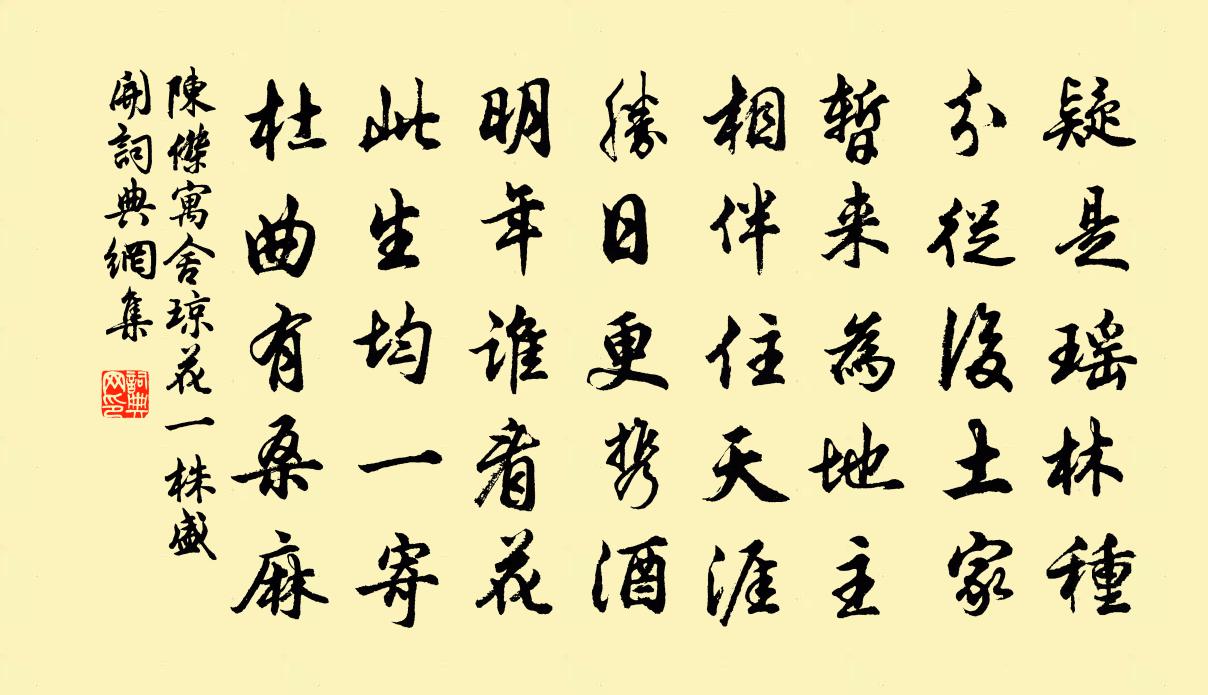 疑是瑶林種
分從後土家
暫来為地主
相伴住天涯
勝日更携酒
明年誰看花
此生均一寄
杜曲有桑麻
陳傑寓舍琼花一株盛
開詞典網集
詞典
网印